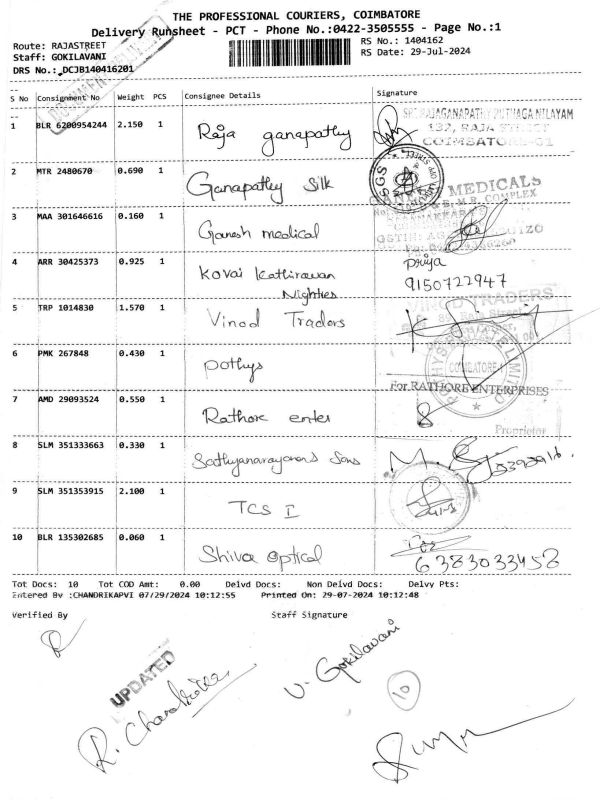 THE PROFESSIONAL COURIERS, COIMBATORE
Delivery Runsheet - PCT - Phone No.:0422-3505555 - Page No.:1
Route: RAJASTREET
Staff: GOKILAVANI
DRS No.: DCJB140416201
RS No.: 1404162
RS Date: 29-Jul-2024
S No Consignment No Weight PCS Consignee Details Signature
1 BLR 6200954244 2.150 1 Raja ganapathy
132, RAJA STREET
COIMBATORE-01
2 MTR 2480670 0.690 1 Ganapathy Silk
MEDICALS
3 MAA 301646616 0.160 1 Ganesh medical
4 ARR 30425373 0.925 1 Kovai Kathirawan Nighties
Priya
9150722947
5 TRP 1014830 1.570 1 Vinod Traders
TRADERS
6 PMK 267848 0.430 1 pothys
COIMBATORE-1
7 AMD 29093524 0.550 1 Rathore enter
For RATHORE ENTERPRISES
Proprietor
8 SLM 351333663 0.330 1 Sathyanarayanans Sons
9 SLM 351353915 2.100 1 TCS I
10 BLR 135302685 0.060 1 Shiva optical
6383033458
Tot Docs: 10 Tot COD Amt: 0.00 Delvd Docs: Non Delvd Docs: Delvy Pts:
Entered By :CHANDRIKAPVI 07/29/2024 10:12:55 Printed On: 29-07-2024 10:12:48
Verified By Staff Signature
UPDATED
V. Gokilavani
10